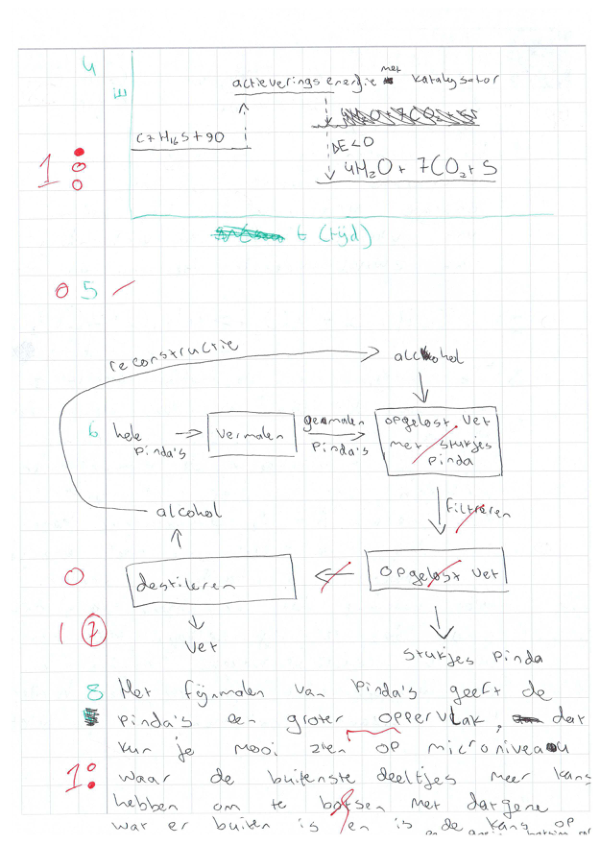 4
E
actieverings energie met katalysator
C7H16S+90
ΔE<0
4H₂O + 7CO₂ + S
1
t (tijd)
0 5
reconstructie
alcohol
6 hele pinda's
vermalen
gemalen pinda's
opgelost vet
met stukjes
pinda
filtreren
alcohol
0
destileren
opgelost vet
1 7
vet
stukjes pinda
8 Het fijnmalen van pinda's geeft de
pinda's een groter oppervlak, dat
kun je mooi zien op microniveau
1 waar de buitenste deeltjes meer kans
hebben om te botsen met datgene
wat er buiten is en is de kans op